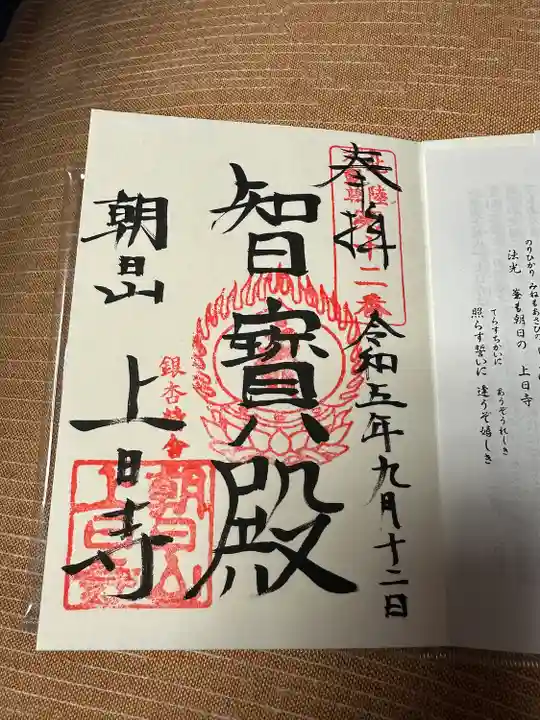 奉拝
令和五年九月十二日
智寳殿
朝日山
上日寺
朝日山
上日寺
のりひかり みねもあさひの
法光 峯も朝日の 上日寺
てらすちかいに あうぞうれしき
照らす誓いに 逢うぞ嬉しき